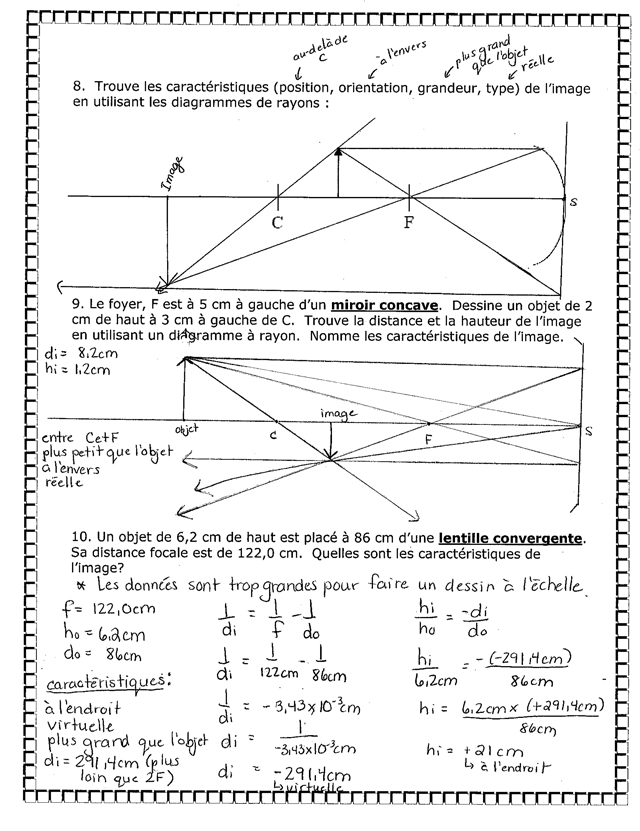 au-delà de
C
à l'envers
plus grand
que l'objet
réelle
8. Trouve les caractéristiques (position, orientation, grandeur, type) de l'image
en utilisant les diagrammes de rayons :
Image
C
F
S
9. Le foyer, F est à 5 cm à gauche d'un miroir concave. Dessine un objet de 2
cm de haut à 3 cm à gauche de C. Trouve la distance et la hauteur de l'image
en utilisant un diagramme à rayon. Nomme les caractéristiques de l'image.
di = 8,2cm
hi = 1,2cm
objet
C
image
F
S
entre C et F
plus petit que l'objet
à l'envers
réelle
10. Un objet de 6,2 cm de haut est placé à 86 cm d'une lentille convergente.
Sa distance focale est de 122,0 cm. Quelles sont les caractéristiques de
l'image?
* Les données sont trop grandes pour faire un dessin à l'échelle.
f = 122,0cm
ho = 6,2cm
do = 86cm
caractéristiques:
à l'endroit
virtuelle
plus grand que l'objet
di = 291,4cm (plus
loin que 2F)
1/di = 1/f - 1/do
1/di = 1/122cm - 1/86cm
1/di = -3,43x10⁻³cm
di = 1/-3,43x10⁻³cm
di = -291,4cm
↳ virtuelle
hi/ho = -di/do
hi/6,2cm = -(-291,4cm)/86cm
hi = 6,2cm x (+291,4cm)/86cm
hi = +21cm
↳ à l'endroit